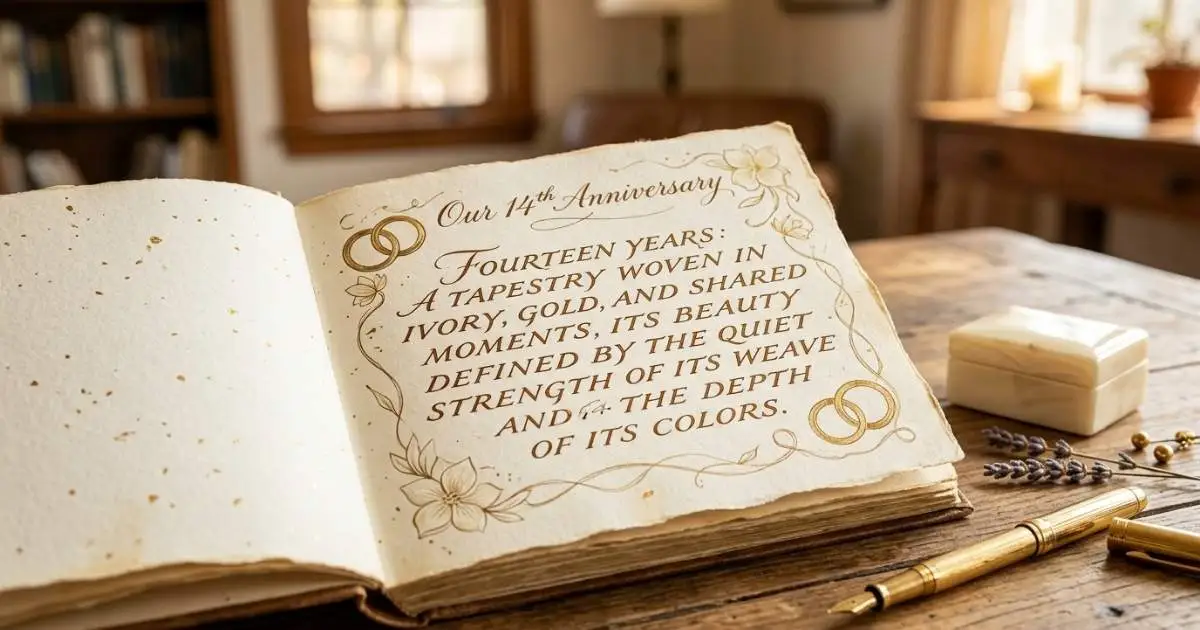 Our 14th Anniversary
FOURTEEN YEARS:
A TAPESTRY WOVEN IN
IVORY, GOLD, AND SHARED
MOMENTS, ITS BEAUTY
DEFINED BY THE QUIET
STRENGTH OF ITS WEAVE
AND THE DEPTH
OF ITS COLORS.